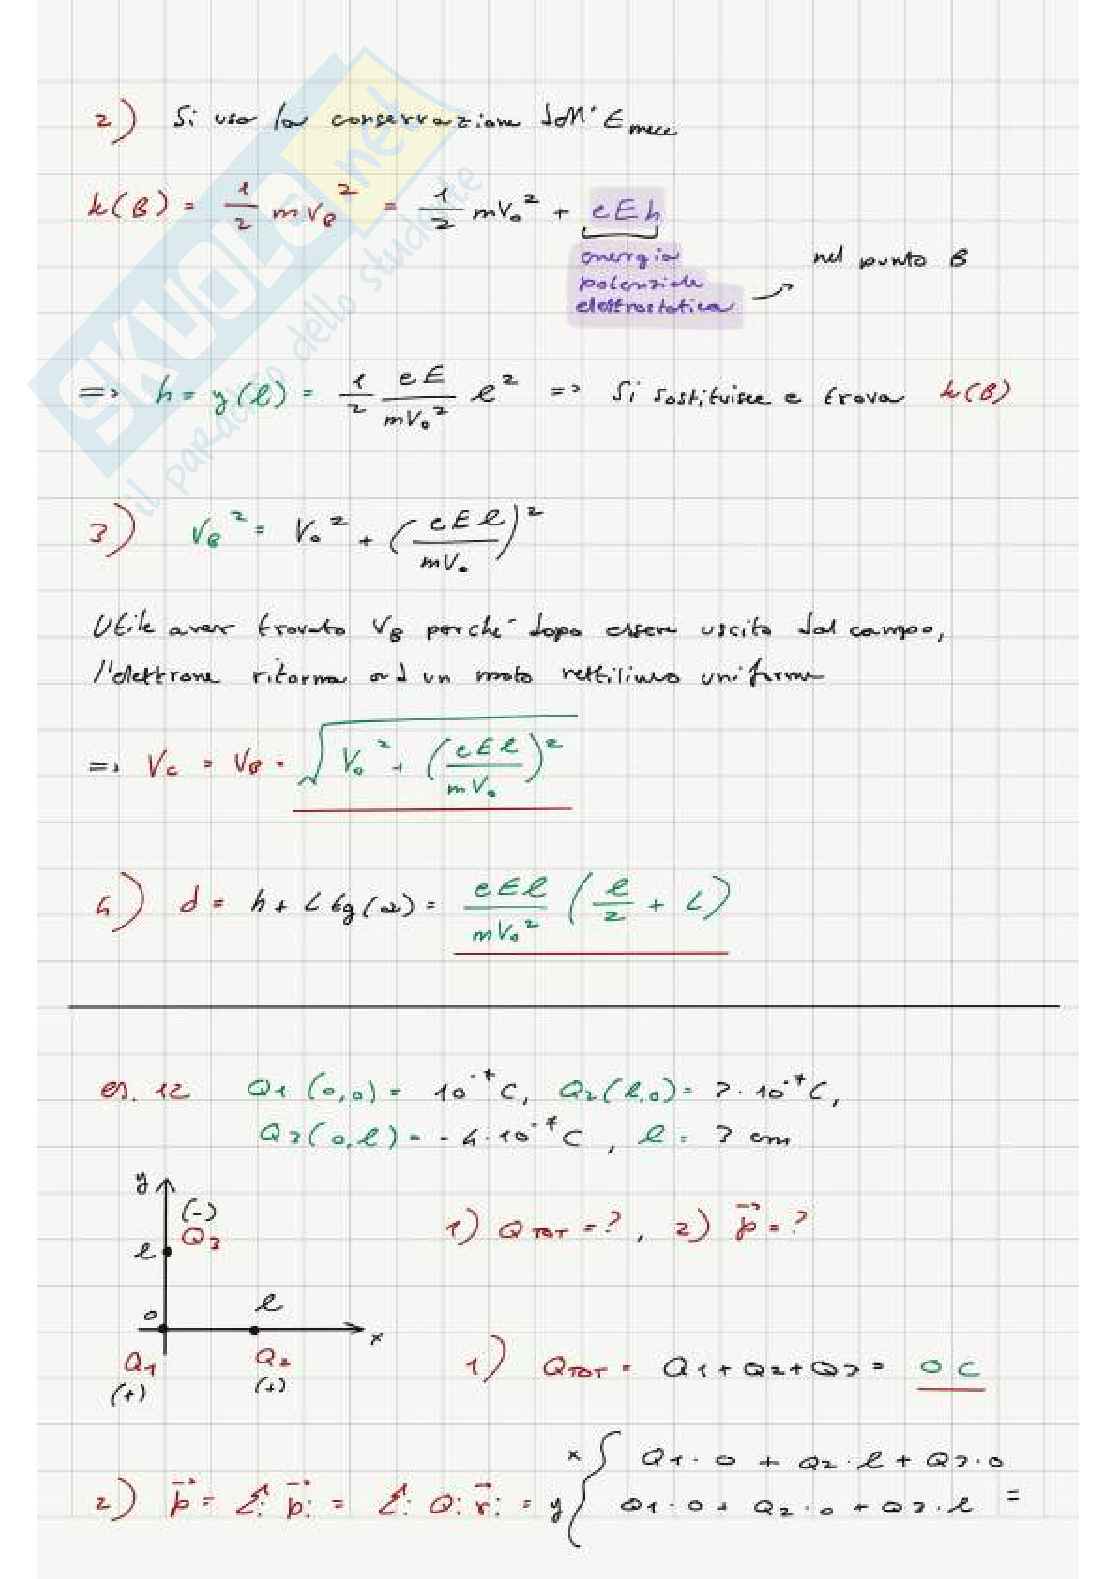 SKUOLA.net
il paradiso dello studente
2) Si usa la conservazione dell'E mecc
k(B) = 1/2 m V_B² = 1/2 m V₀² + eEh
energia potenziale elettrostatica → nel punto B
=> h = y(l) = 1/2 eE/(mV₀²) l² => Si sostituisce e trova k(B)
3) V_B² = V₀² + (eEl/(mV₀))²
Utile aver trovato V_B perché dopo essere uscito dal campo,
l'elettrone ritorna ad un moto rettilineo uniforme
=> V_C = V_B = √(V₀² + (eEl/(mV₀))²)
4) d = h + L tg(α) = eEl/(mV₀²) (l/2 + L)
es. 12 Q1 (0,0) = 10⁻⁷ C, Q2 (l,0) = 3·10⁻⁷ C,
Q3 (0,l) = -4·10⁻⁷ C, l = 3 cm
y
(-)
Q3
l
0
l
x
Q1
(+)
Q2
(+)
1) Q TOT = ?, 2) p⃗ = ?
1) Q TOT = Q1 + Q2 + Q3 = 0 C
2) p⃗ = Σᵢ p⃗ᵢ = Σᵢ Qᵢ r⃗ᵢ = { x Q1·0 + Q2·l + Q3·0
y Q1·0 + Q2·0 + Q3·l =